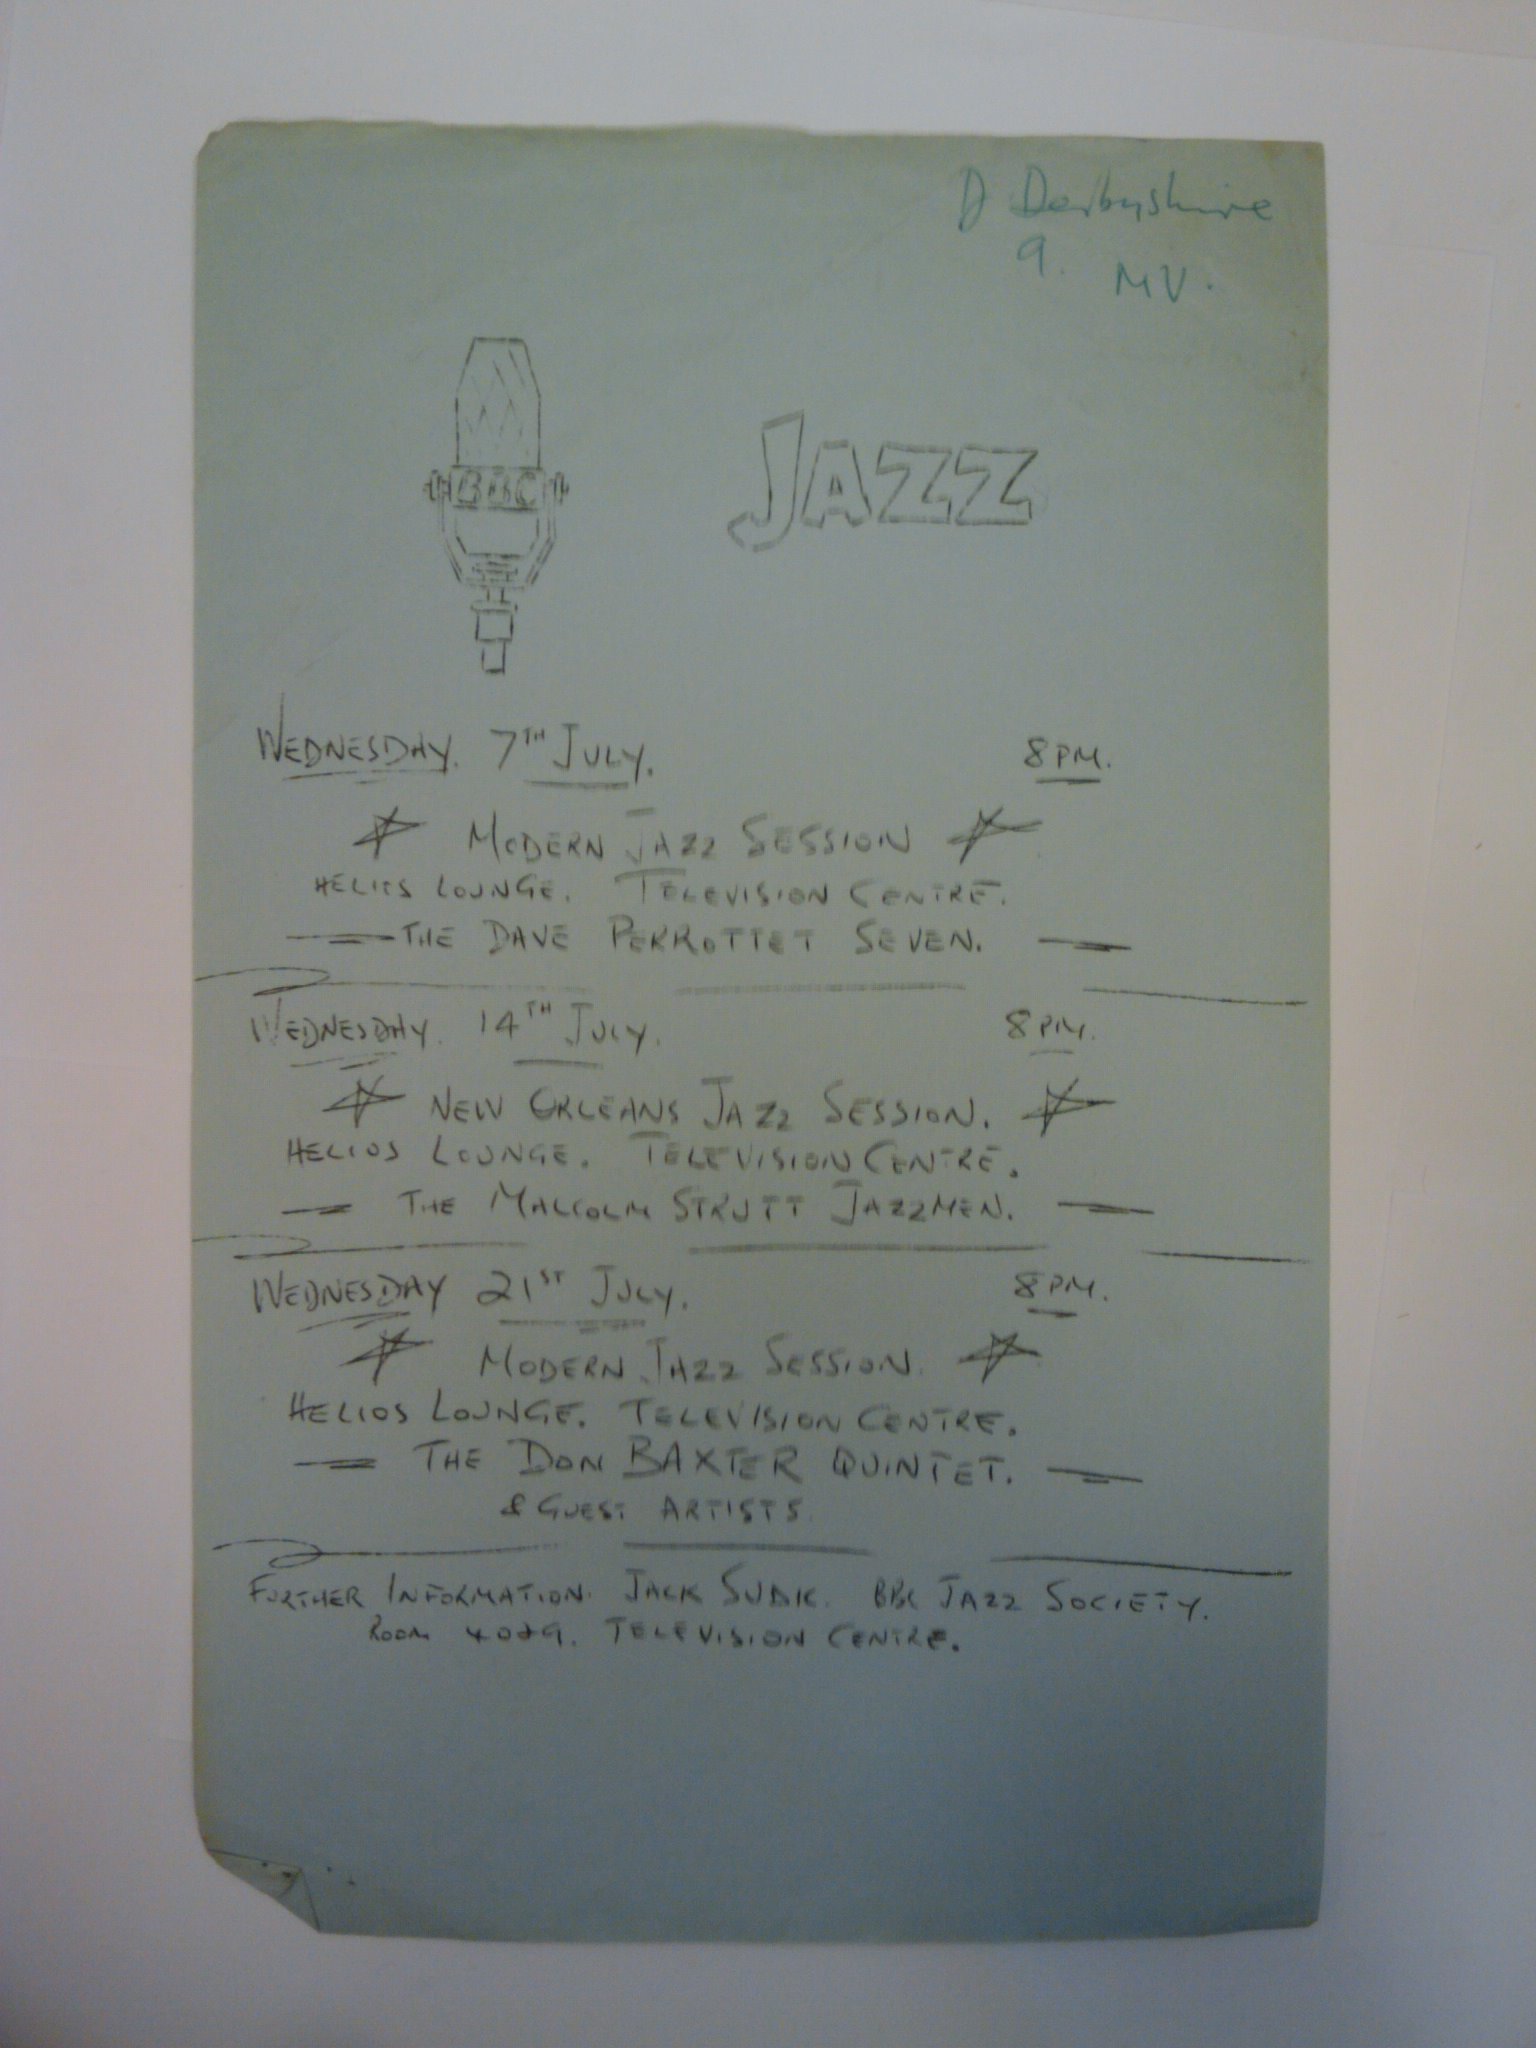 D Derbyshire
9. MV.
BBC
JAZZ
WEDNESDAY. 7TH JULY. 8PM.
MODERN JAZZ SESSION
HELIOS LOUNGE. TELEVISION CENTRE.
THE DAVE PERROTTET SEVEN.
WEDNESDAY. 14TH JULY. 8PM.
NEW ORLEANS JAZZ SESSION.
HELIOS LOUNGE. TELEVISION CENTRE.
THE MALCOLM STRUTT JAZZMEN.
WEDNESDAY 21ST JULY. 8PM.
MODERN JAZZ SESSION.
HELIOS LOUNGE. TELEVISION CENTRE.
THE DON BAXTER QUINTET.
& GUEST ARTISTS.
FURTHER INFORMATION. JACK BBC JAZZ SOCIETY.
ROOM TELEVISION CENTRE.